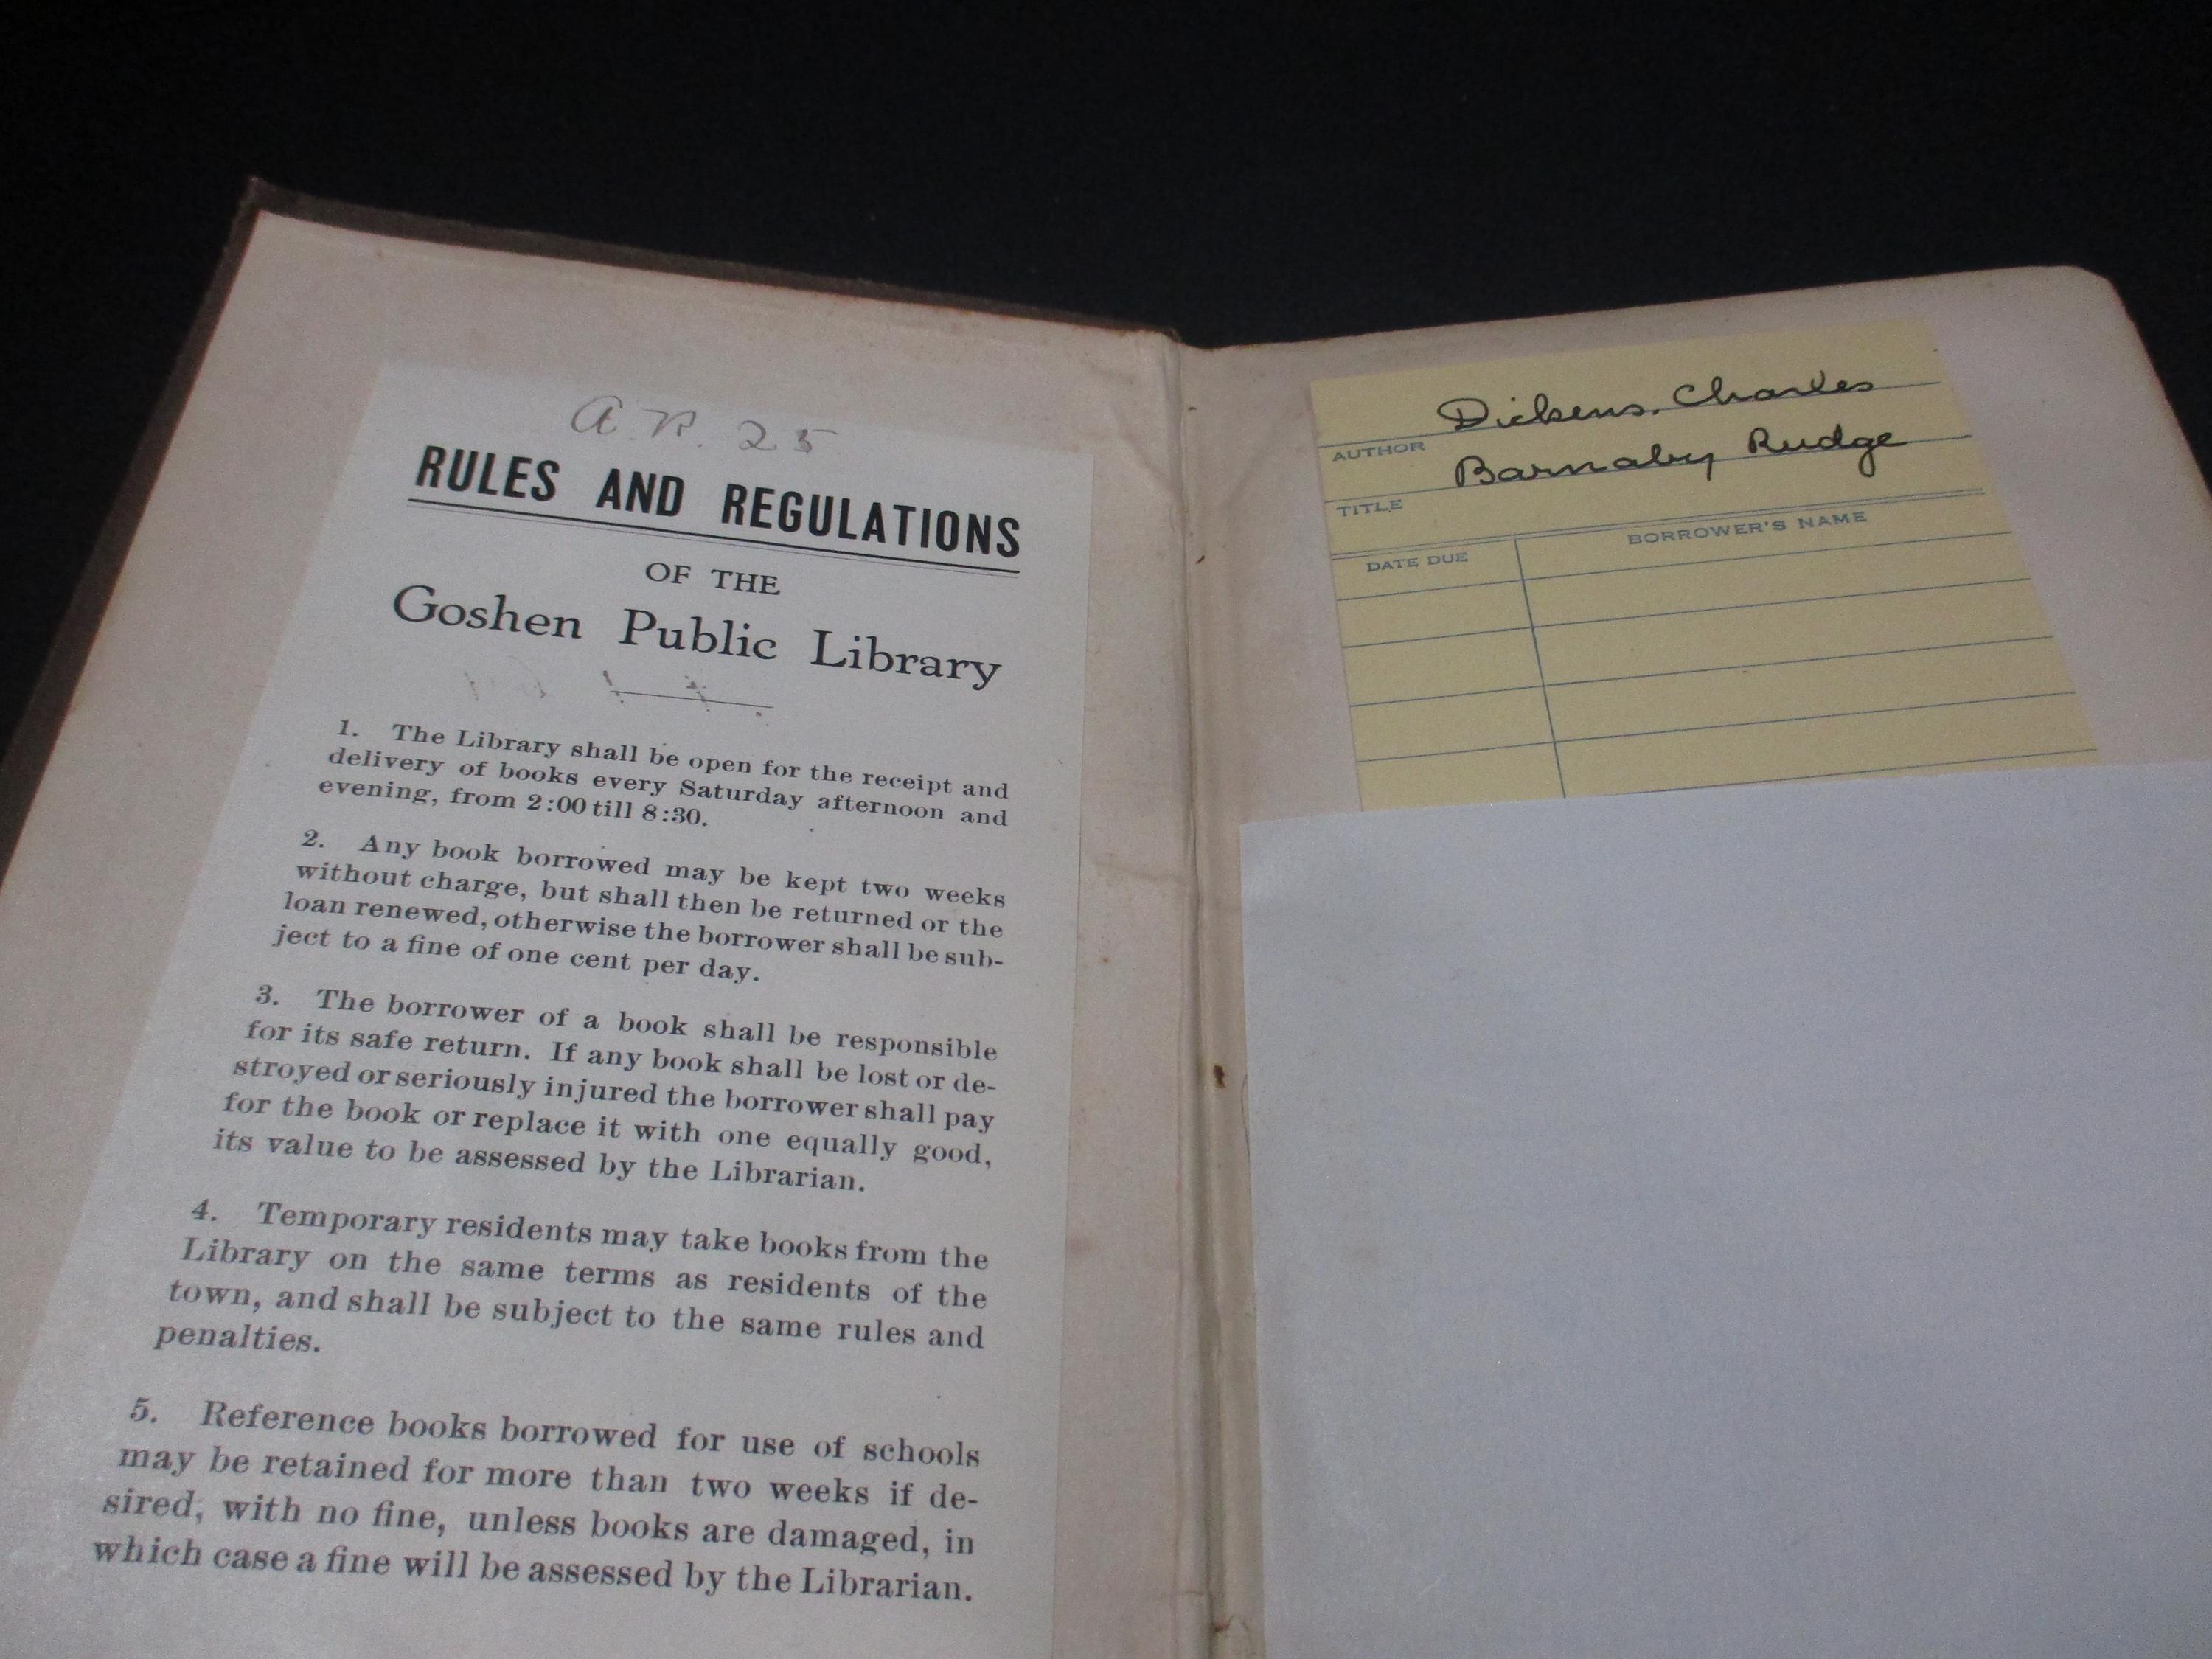 A.R. 25
RULES AND REGULATIONS
OF THE
Goshen Public Library
1. The Library shall be open for the receipt and
delivery of books every Saturday afternoon and
evening, from 2:00 till 8:30.
2. Any book borrowed may be kept two weeks
without charge, but shall then be returned or the
loan renewed, otherwise the borrower shall be sub-
ject to a fine of one cent per day.
3. The borrower of a book shall be responsible
for its safe return. If any book shall be lost or de-
stroyed or seriously injured the borrower shall pay
for the book or replace it with one equally good,
its value to be assessed by the Librarian.
4. Temporary residents may take books from the
Library on the same terms as residents of the
town, and shall be subject to the same rules and
penalties.
5. Reference books borrowed for use of schools
may be retained for more than two weeks if de-
sired, with no fine, unless books are damaged, in
which case a fine will be assessed by the Librarian.
Dickens, Charles
AUTHOR
Barnaby Rudge
TITLE
DATE DUE BORROWER'S NAME